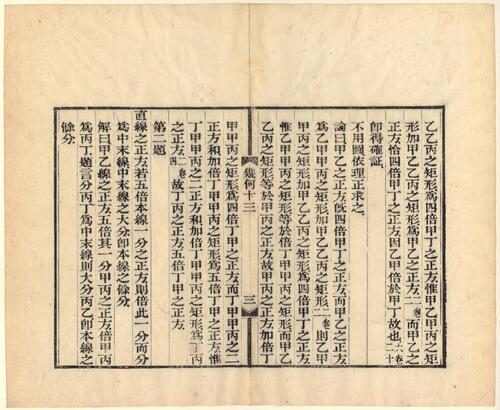 乙乙丙之矩形爲四倍甲丁之正方惟甲乙甲丙之矩
形加甲乙乙丙之矩形等於甲乙之正方二卷二而甲乙之
正方恰四倍甲丁之正方因甲乙倍於甲丁故也六卷二十
卽得確証
不用圖依理正求之
論曰甲乙之正方旣四倍甲丁之正方而甲乙之正方
爲乙甲甲丙之矩形加甲乙乙丙之矩形二卷二則乙甲
甲丙之矩形加甲乙乙丙之矩形爲四倍甲丁之正方
惟乙甲甲丙之矩形等於倍丁甲甲丙之矩形而甲乙
乙丙之矩形等於甲丙之正方故甲丙之正方加倍丁
幾何十三 三
甲甲丙之矩形爲四倍丁甲之正方而丁甲甲丙之二
正方和加倍丁甲甲丙之矩形爲五倍丁甲之正方惟
丁甲甲丙之二正方和加倍丁甲甲丙之矩形爲丁丙
之正方二卷四故丁丙之正方五倍丁甲之正方
第二題
直線之正方若五倍本線一分之正方則倍此一分而分
爲中末線中末線之大分卽本線之餘分
解曰甲乙線之正方五倍其一分甲丙之正方倍甲丙
爲丙丁題言分丙丁爲中末線則大分丙乙卽本線之
餘分